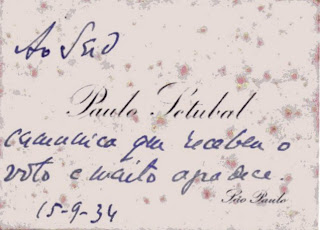 Ao Seio
Paulo Setubal
comunica que recebeu o
voto e muito agradece.
São Paulo
15-9-34